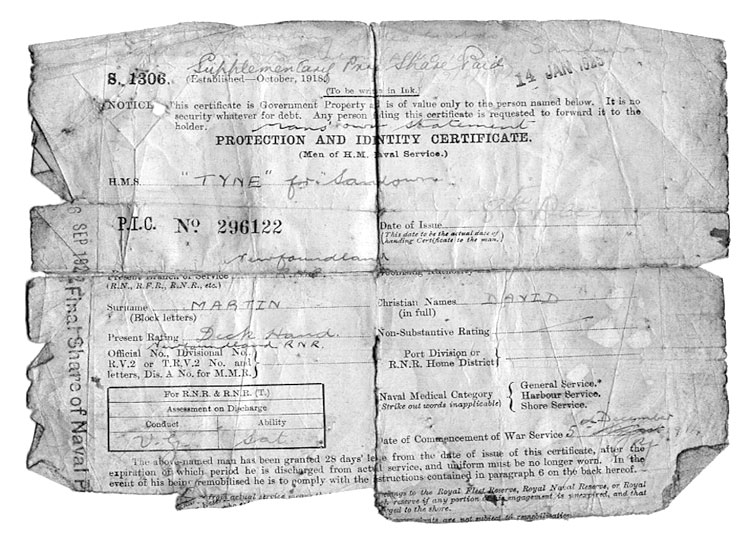 Supplementary Prize Share Paid
S. 1306. (Established—October, 1918.)
14 JAN 1925
(To be written in Ink.)
NOTICE. This certificate is Government Property and is of value only to the person named below. It is no
security whatever for debt. Any person finding this certificate is requested to forward it to the
holder. man's own statement
PROTECTION AND IDENTITY CERTIFICATE.
(Men of H.M. Naval Service.)
H.M.S. "TYNE" for "Sandown"
P.I.C. No 296122
Date of Issue
(This date to be the actual date of
handing Certificate to the man.)
Newfoundland
Present Branch of Service
(R.N., R.F.R., R.N.R., etc.)
Surname MARTIN
(Block letters)
Christian Names DAVID
(in full)
Present Rating Deck Hand.
Non-Substantive Rating
Newfoundland RNR.
Official No., Divisional No.
R.V.2 or T.R.V.2 No. and
letters, Dis. A No. for M.M.R.
Port Division or
R.N.R. Home District
For R.N.R. & R.N.R. (T.)
Assessment on Discharge
Conduct Ability
V.G. Sat
Naval Medical Category
(Strike out words inapplicable)
General Service.*
Harbour Service.
Shore Service.
Date of Commencement of War Service
December
The above-named man has been granted 28 days' leave from the date of issue of this certificate, after the
expiration of which period he is discharged from actual service, and uniform must be no longer worn. In the
event of his being remobilised he is to comply with the instructions contained in paragraph 6 on the back hereof.
from actual service
belongs to the Royal Fleet Reserve, Royal Naval Reserve, or Royal
reserve if any portion of his engagement is unexpired, and that
to the shore.
are not subject to remobilisation.
6 SEP 192
Final Share of Naval P